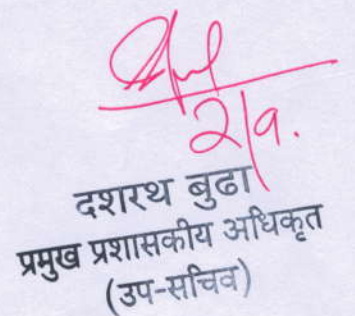 २।९.
दशरथ बुढा
प्रमुख प्रशासकीय अधिकृत
(उप-सचिव)